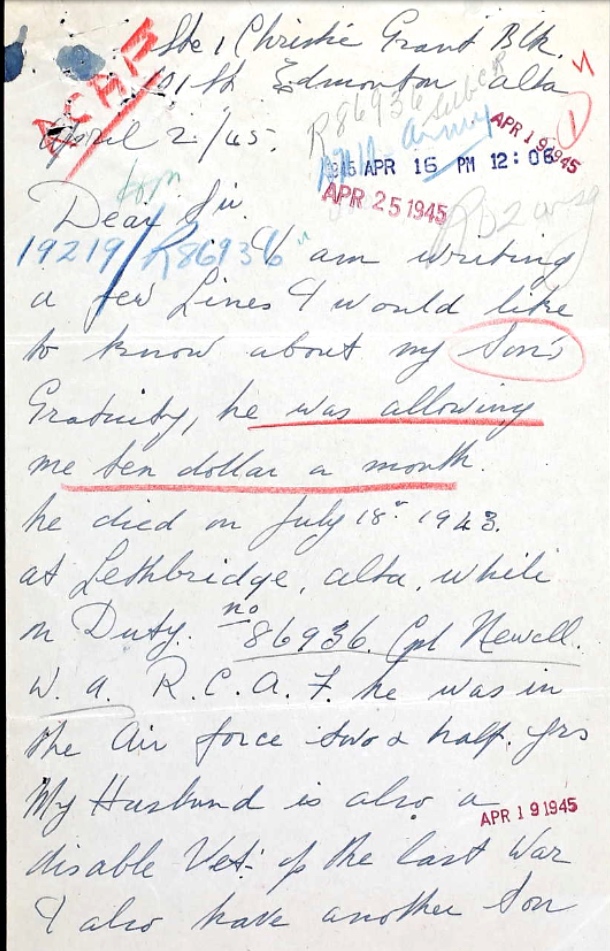 Ste 1 Christie Grant Blk.
101 St Edmonton Alta
April 2/45.
R86936
Army
APR 19 1945
1945 APR 16 PM 12:06
APR 25 1945
Dear Sir
19219/R86936 I am writing
a few Lines I would like
to know about my Son's
Gratuity, he was allowing
me ten dollar a month.
he died on July 18" 1943.
at Lethbridge, alta, while
on Duty. no 86936. Cpl Newell.
W. A. R.C.A.F. he was in
the Air force two & half. yrs
My Husband is also a
APR 19 1945
disable Vet: of the last War
I also have another Son